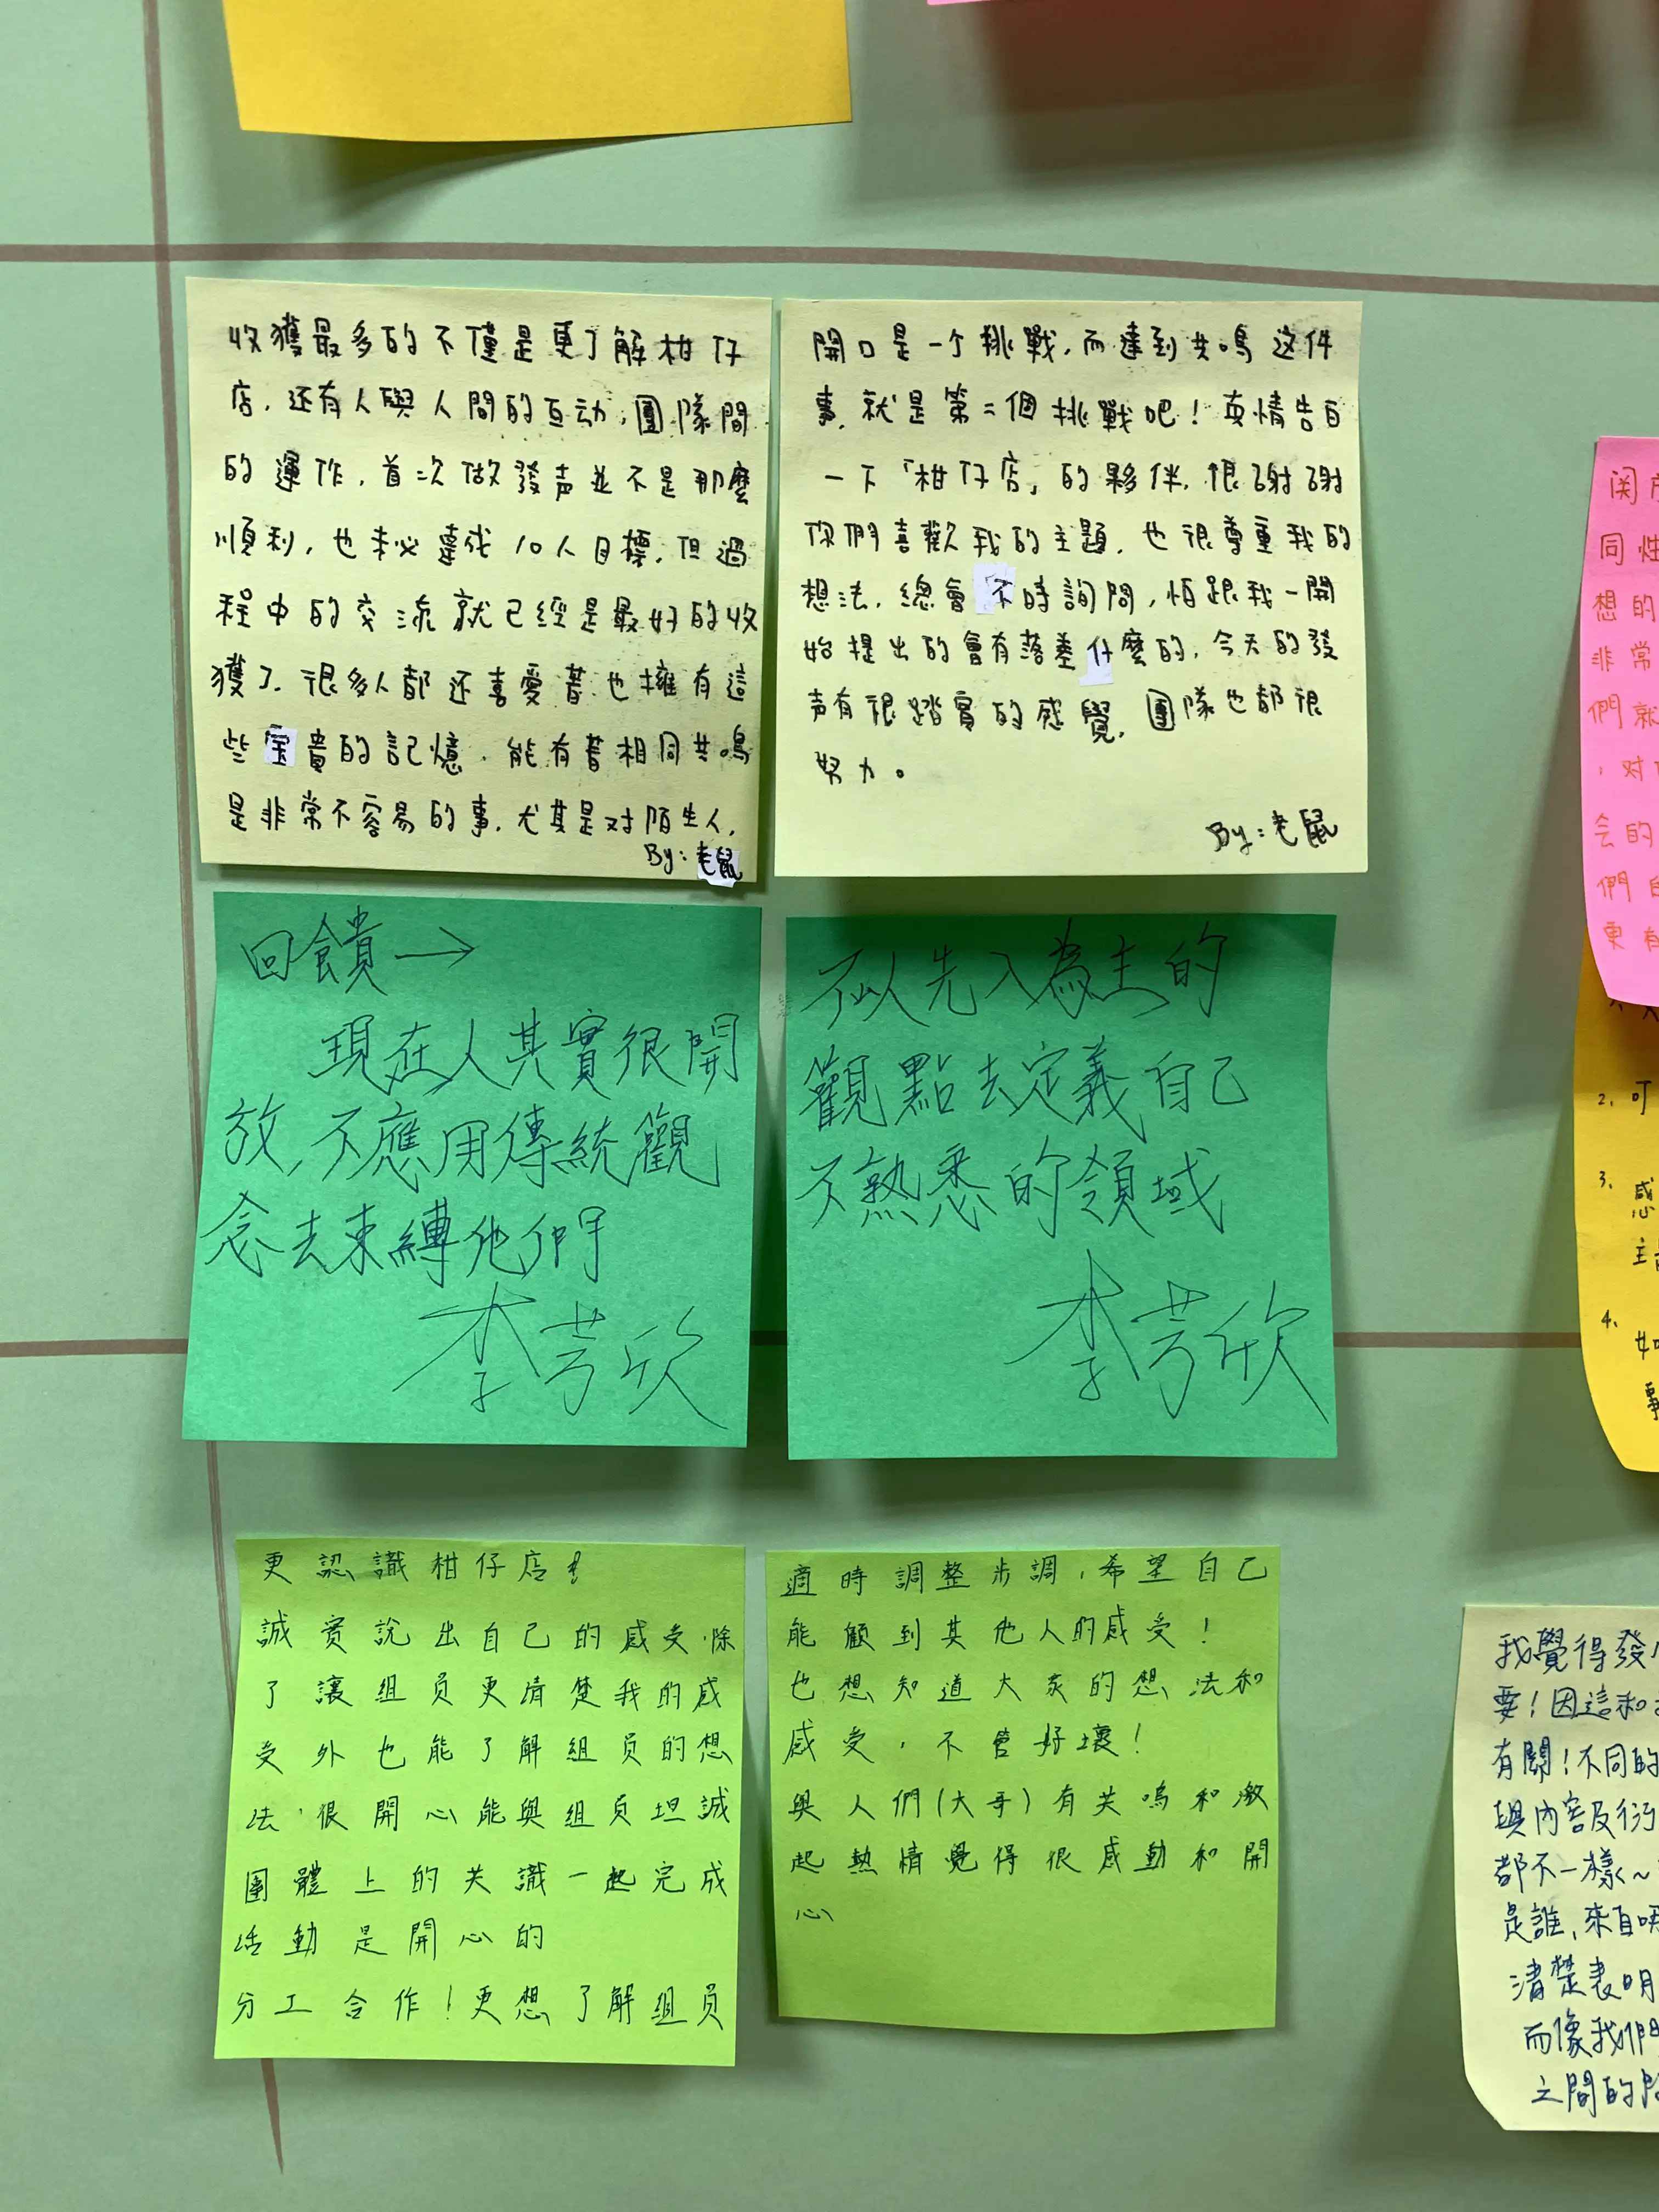 收獲最多的不僅是更了解柑仔
店，还有人與人間的互动，團隊間
的運作，首次做發声並不是那麼
順利，也未必達成10人目標，但過
程中的交流就已經是最好的收
獲了，很多人都还喜愛著也擁有這
些宝貴的記憶，能有著相同共鳴
是非常不容易的事，尤其是对陌生人，
By：老鼠
開口是一个挑戰，而達到共鳴这件
事，就是第二個挑戰吧！真情告白
一下「柑仔店」的夥伴，很謝謝
你們喜歡我的主題，也很尊重我的
想法，總會不時詢問，怕跟我一開
始提出的會有落差什麼的，今天的發
声有很踏實的感覺，團隊也都很
努力。
By：老鼠
回饋→
現在人其實很開
放，不應用傳統觀
念去束縛他們
李芳欣
不以先入為主的
觀點去定義自己
不熟悉的領域
李芳欣
更認識柑仔店！
誠實說出自己的感受，除
了讓組員更清楚我的感
受外也能了解組員的想
法，很開心能與組員坦誠
團體上的共識一起完成
活動是開心的
分工合作！更想了解組員
適時調整步調，希望自己
能顧到其他人的感受！
也想知道大家的想法和
感受，不管好壞！
與人們（大哥）有共鳴和激
起熱情覺得很感動和開
心
同性
想的
非常
們就
，对
会的
們
更有
2、可
3、感
主
4、如
事
我覺得發
要！因這和
有關！不同的
與內容及衍
都不一樣～
是誰，來自
清楚表明
而像我們
之間的